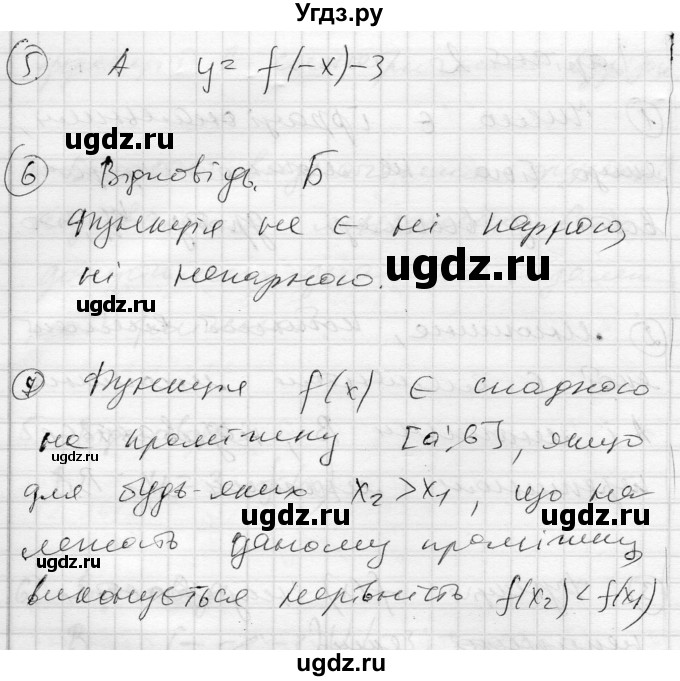 Угдз.ру
5 А y = f(-x) - 3
ugdz.ru
6 Відповідь. Б
Функція не є ні парною,
ugdz.ru
ні непарною.
ugdz.ru
7 Функція f(x) є спадною
на проміжку [a; b], якщо
ugdz.ru
для будь-яких x₂ > x₁, що на-
ugdz.ru
ugdz.ru
лежать даному проміжку
виконується нерівність f(x₂) < f(x₁)
ugdz.ru